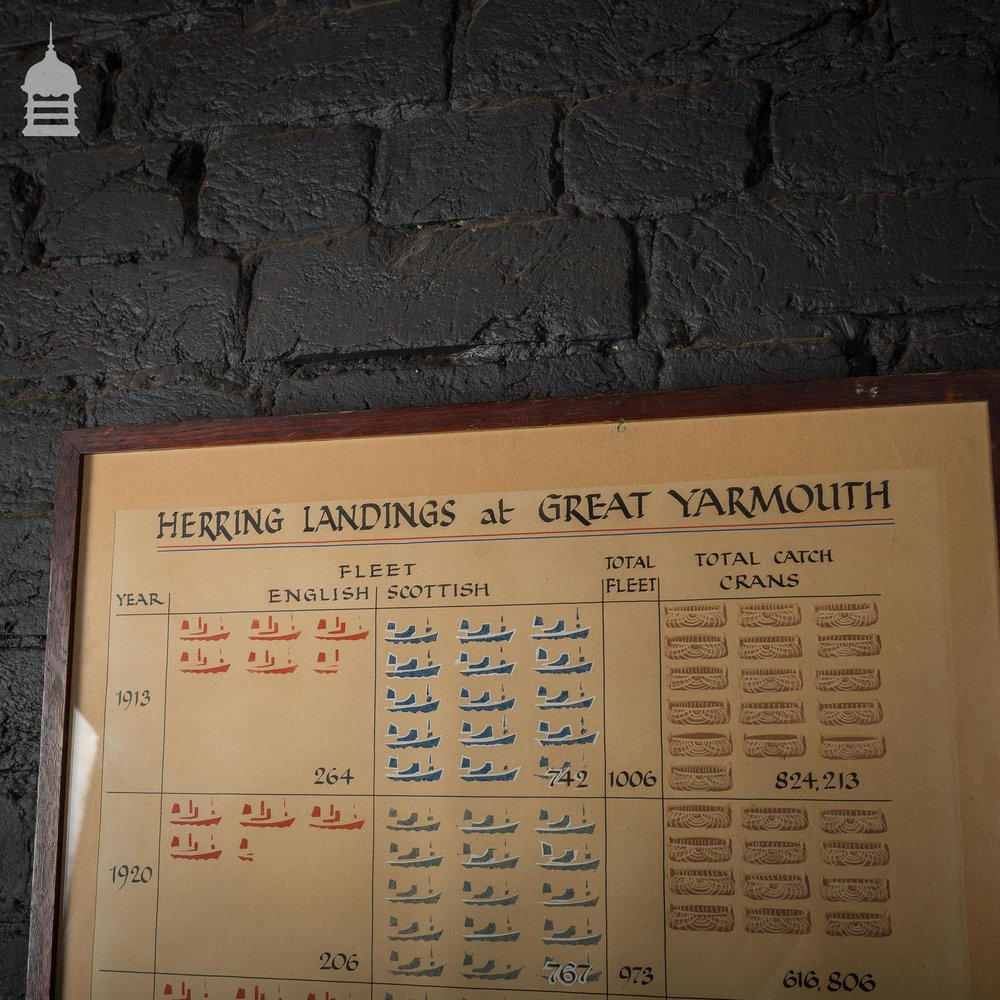 HERRING LANDINGS at GREAT YARMOUTH
FLEET
TOTAL
TOTAL CATCH
YEAR
ENGLISH
SCOTTISH
FLEET
CRANS
1913
264
742
1006
824,213
1920
206
767
973
616,806